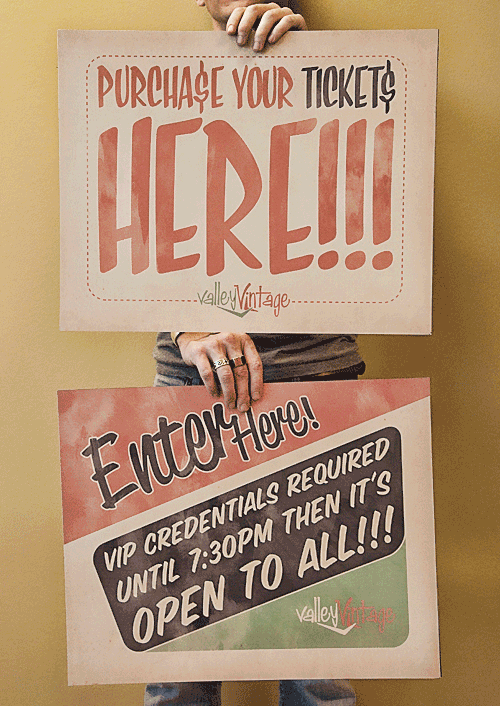 PURCHA$E YOUR TICKET$
HERE!!!
valleyVintage
Enter Here!
VIP CREDENTIALS REQUIRED
UNTIL 7:30PM THEN IT'S
OPEN TO ALL!!!
valleyVintage